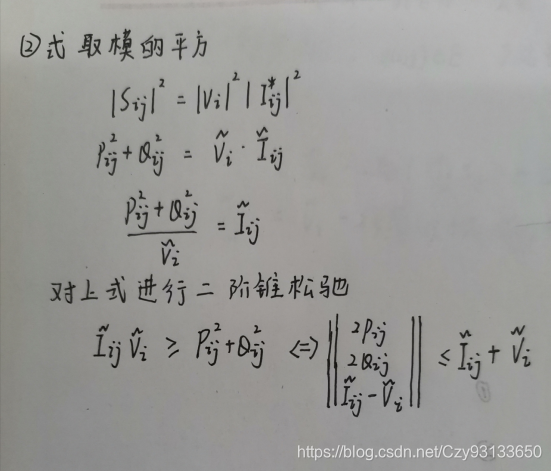 ②式取模的平方
|Sij|² = |Vi|² |I*ij|²
Pij² + Qij² = Ṽi · Ĩij
(Pij² + Qij²) / Ṽi = Ĩij
对上式进行二阶锥松驰
Ĩij Ṽi ≥ Pij² + Qij² <=> ‖ 2Pij 2Qij Ĩij - Ṽi ‖ ≤ Ĩij + Ṽi
https://blog.csdn.net/Czy93133650